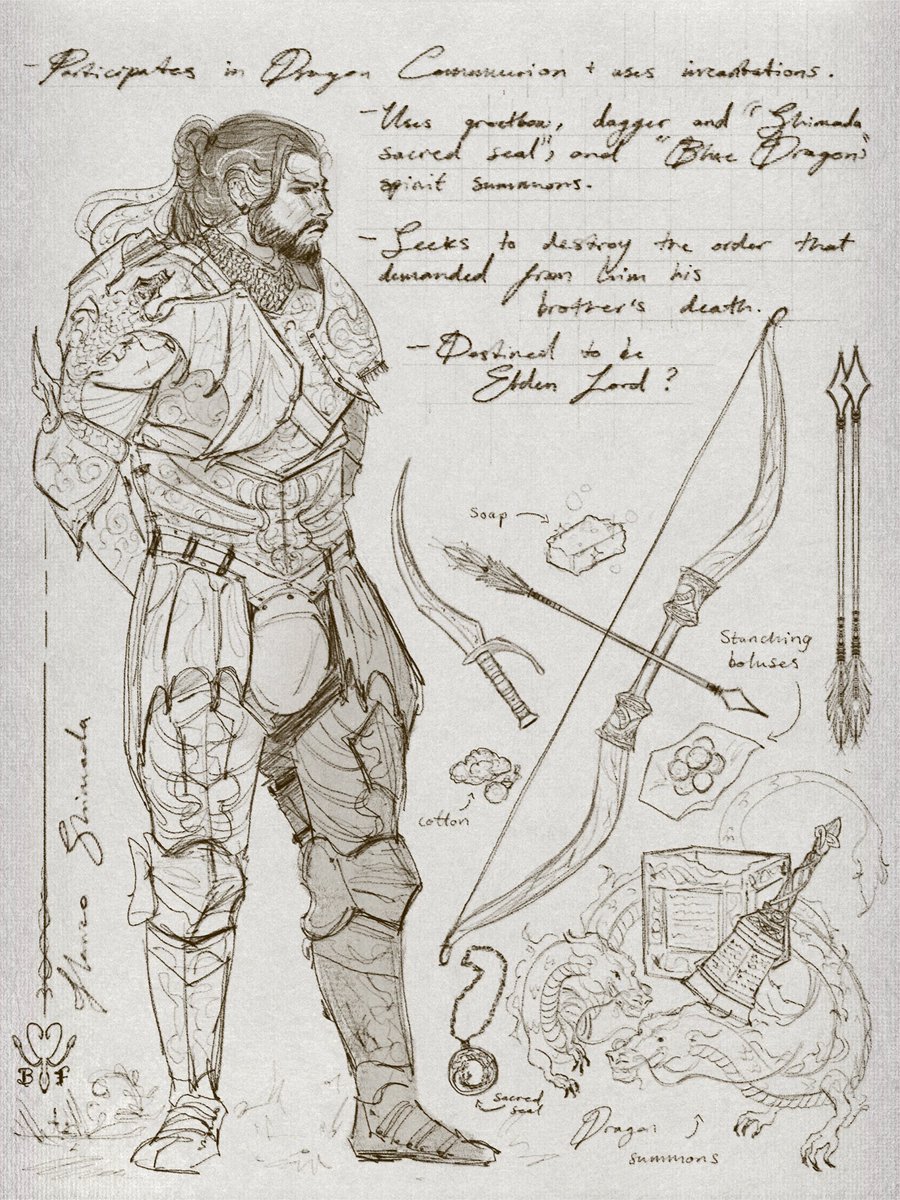 - Participates in Dragon Communion + uses incantations.
- Uses greatbow, dagger and "Shimada
sacred seal", and "Blue Dragon"
spirit summons.
- Seeks to destroy the order that
demanded from him his
brother's death.
- Destined to be
Elden Lord?
soap
Stanching
boluses
cotton
Hanzo Shimada
B F
sacred
seal
Dragon
summons